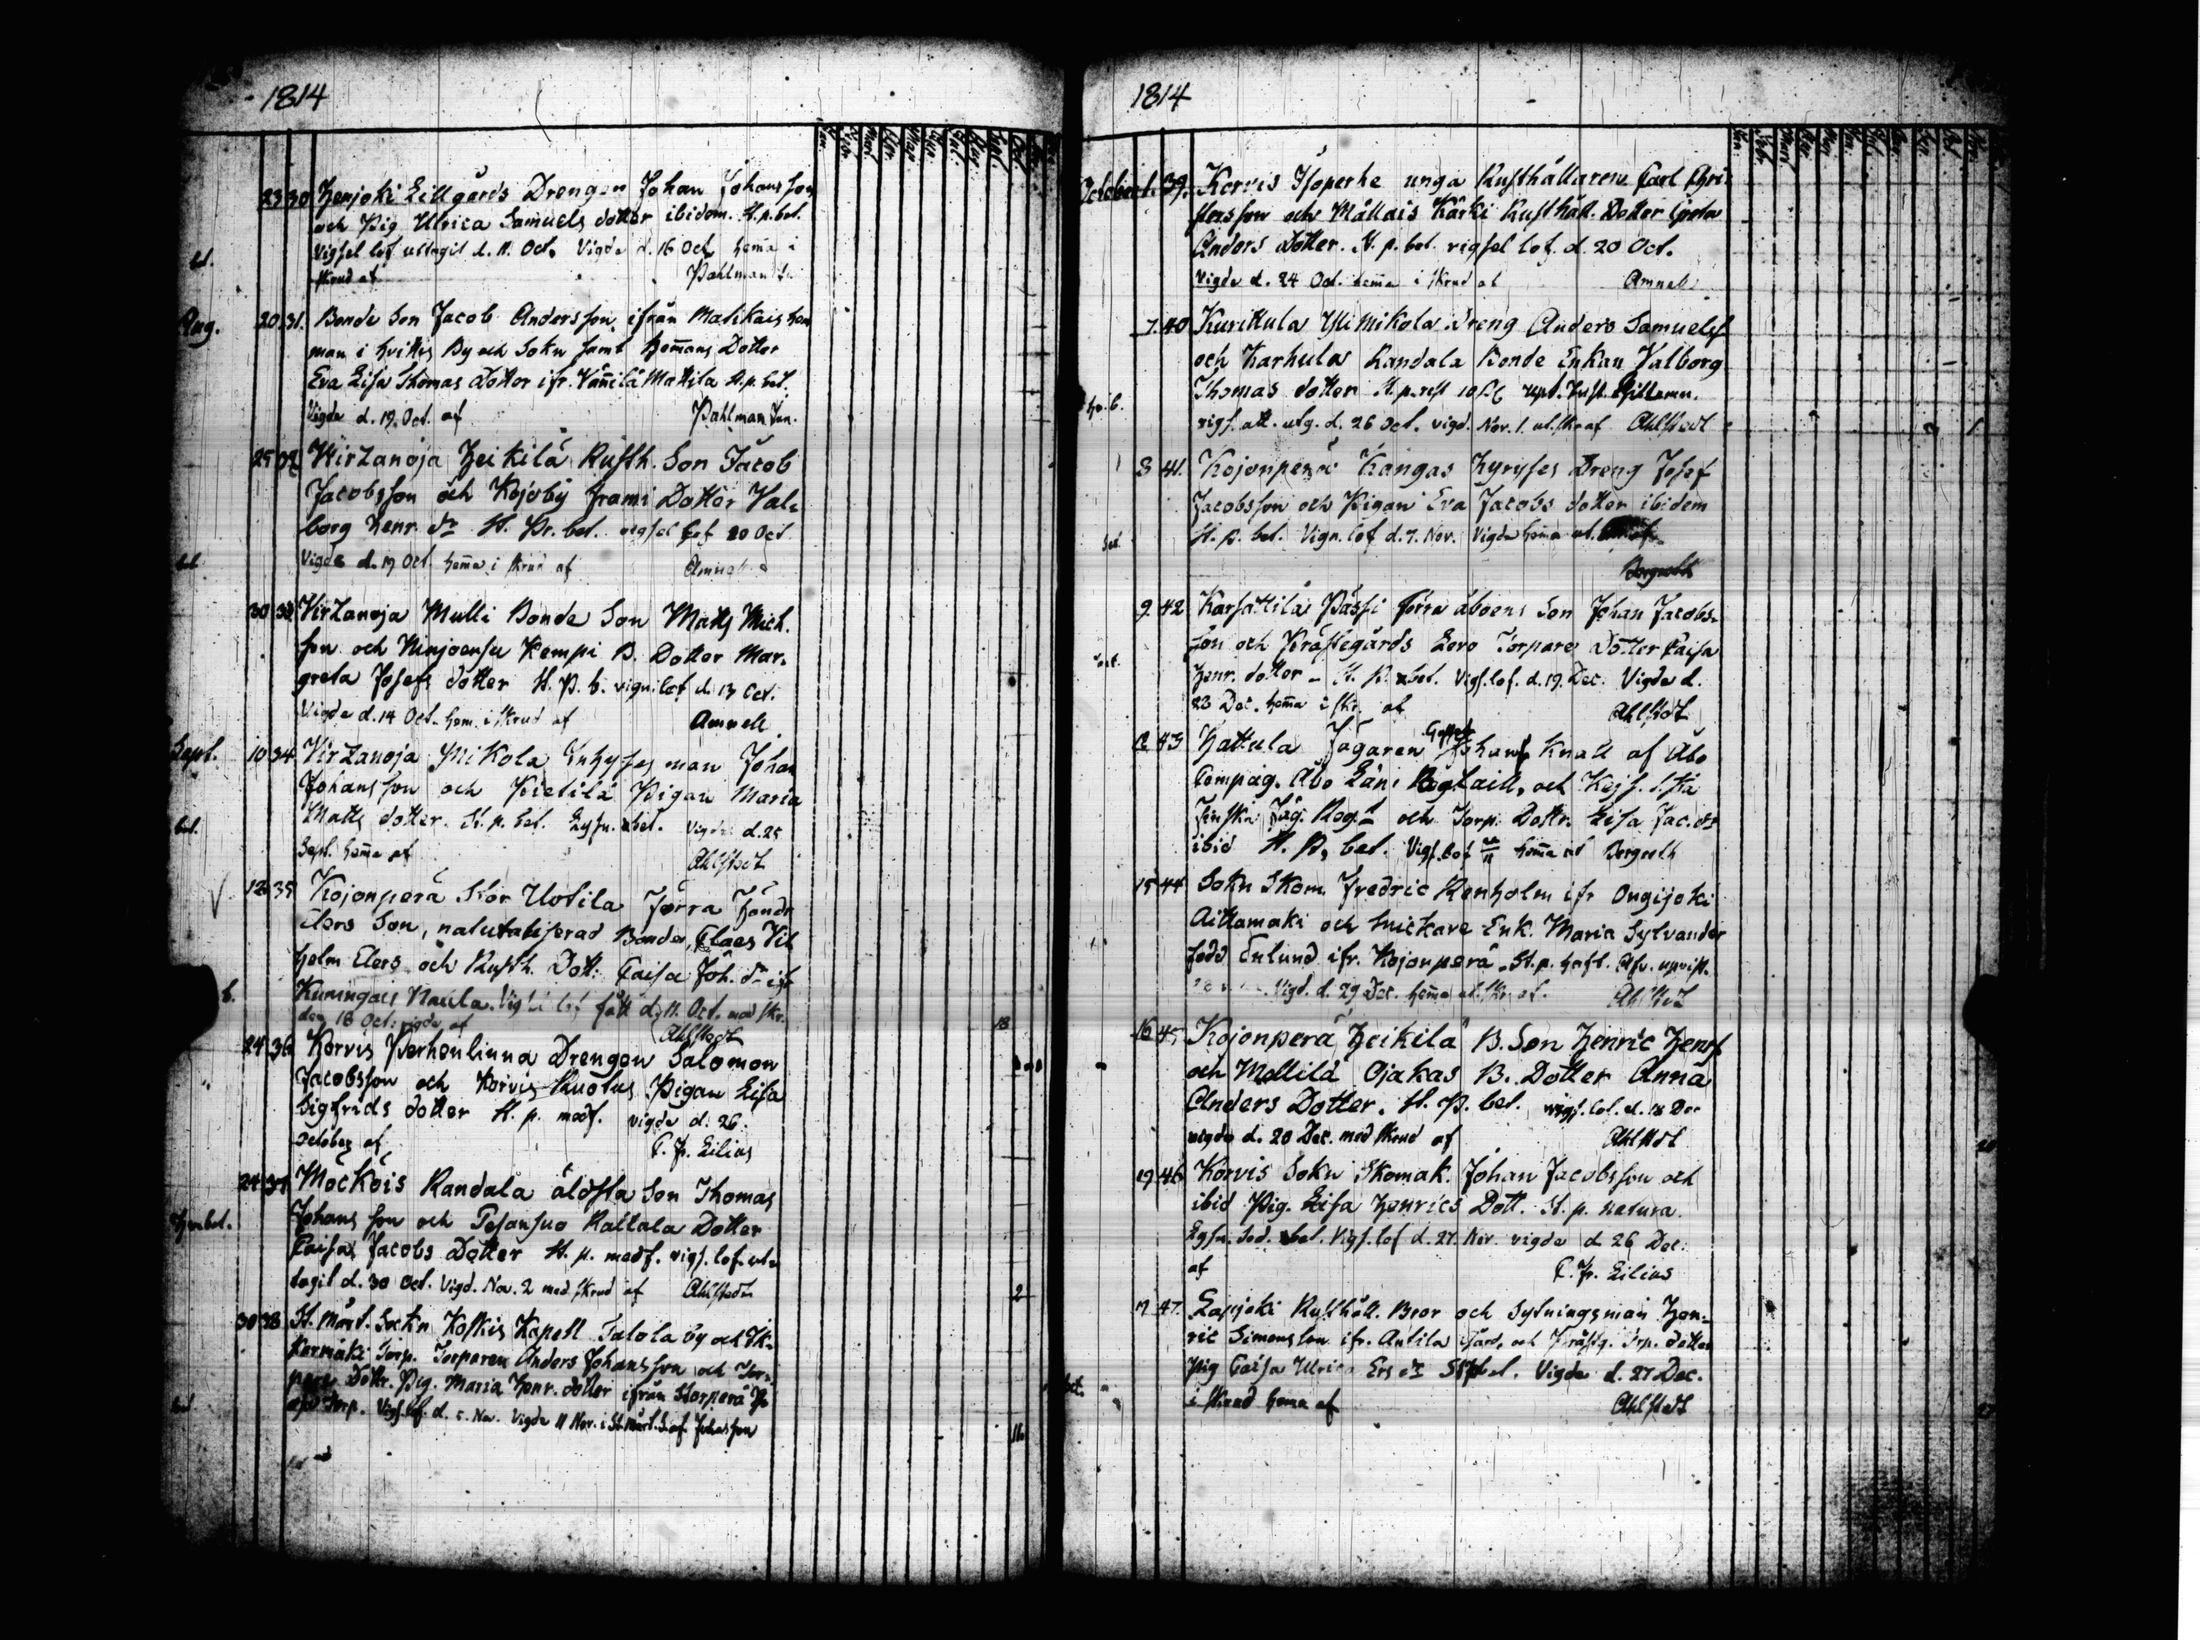 1814
23 30 Henjoki Lillgårds Drengen Johan Johansson
och Pig. Ulrica Samuels dotter ibidem. St. p. bet.
Vigsel lof uttagit d. 11. Oct. Vigde d. 16 Oct hema i
skrud af Pahlman
Aug. 20 31. Bonde Son Jacob Andersson ifrån Matikais hem
man i Hvittis By och Sokn samt Hemans Dotter
Eva Lisa Thomas Dotter ifr. Vännilä Mattila St. p. bet.
Vigde d. 19. Oct. af Pahlman Jun.
25 32 Wirzanoja Heikilä Rusth. Son Jacob
Jacobsson och Kojoby Frami Dotter Val-
borg Henr. dr St. Pr. bet. vigsel lof 20 Oct
Vigde d. 19 Oct. hema i skrud af Amnell
30 33 Virzanoja Mulli Bonde Son Matts Mich.
son och Ninjoensu Kempi B. Dotter Mar-
greta Josefs dotter St. P. b. vigni lof d. 13 Oct.
Vigde d. 14 Oct. hem. i skrud af Amnell
Sept. 10 34 Virzanoja Mikola Inhyses man Johan
Johansson och Pietilä Pigan Maria
Matts dotter. St. p. bet. Lysn. bet. Vigde d. 25
Sept. hema af Ahlstedt
12 35 Kojonperä Stor Uotila Förra Fändr
Elers Son, naturaliserad Bonden, Claes Vil
helm Elers och Rusth. Dott. Caisa Joh. dr ifr
Kuningais Naula. Vigsel lof fått d. 11. Oct. med skr.
den 18 Oct. vigde af Ahlstedt
18
24 36 Korvis Perhenlinna Drengen Salomon
Jacobsson och Korvis Ruotus Pigan Lisa
Sigfrids dotter St. p. medf. vigde d. 26.
October af C. Fr. Lilius
24 37 Mockois Randala äldsta Son Thomas
Johansson och Tesansuo Rattala Dotter
Caisa Jacobs Dotter St. p. medf. vigs. lof. ut-
tagit d. 30 Oct. Vigd. No. 2 med skrud af Ahlstedt
2
30 38 St. Mårt. Sockn Koskis Kapell Talola by och
Kormäki Torp. Torparen Anders Johansson och Tor-
pare Dottr. Pig. Maria Henr. dotter ifrån Storperä
Torp. Vigs. lof. d. 5. No. Vigde 11 Nov. i St. Mårt. S. af Johansson
11
1814
October 1. 39. Korvis Isoperhe unga Rusthållaren Carl Chri-
stersson och Mällais Kärki Rusthåll. Dotter Greta
Anders Dotter. St. p. bet. vigsel lof. d. 20 Oct.
Vigde d. 24 Oct. hema i skrud af Amnell
7. 40 Kurikula Yli Mikola Dreng Anders Samuels
och Karhula Randala Bonde Enkan Valborg
Thomas dotter St. p. rest
vigs. att. utg. d. 26 Oct. vigd. Nov. 1. ut. skr af Ahlstedt
1
8 41. Kojonperä Kangas Hyryses Dreng Josef
Jacobsson och Pigan Eva Jacobs dotter ibidem
St. p. bet. Vign. lof d. 7. Nov. Vigde hema ut.
9. 42 Karsattila Pässi förra åboens Son Johan Jacobs-
son och Prästegårds Eero Torpares Dotter Caisa
Henr. dotter - St. P. bet. Vigs. lof. d. 19. Dec. Vigde d.
23 Dec. hema i skr. af Ahlstedt
12 43 Hattula Jägaren Johan Knall af Åbo
Compag. Åbo Läns Bataill. och Kejs. 1:sta
Finska Jäg. Reg. och Torp. Dottr. Lisa Jac. dr
ibid St. P. bet. Vigs. lof hema af Bergroth
15 44 Sokn Skom. Fredric Renholm ifr Ongijoki
Aittamäki och Snickare Enk. Maria Sylvander
född Enlund ifr. Kojonperä. St. p. haft. Afv. upvist.
Vigd. d. 29 Dec. hema ut. skr. af. Ahlstedt
16 45 Kojonperä Heikilä B. Son Henric Henrs
och Mellilä Ojakas B. Dotter Anna
Anders Dotter. St. P. bet. vigs. lof. d. 18 Dec
vigde d. 20 Dec. med skrud af Ahlstedt
20
19 46 Korvis Sokn Skomak. Johan Jacobsson och
ibid Pig. Lisa Henrics Dott. St. p. natura.
Lysn. Sed. bet. Vigs. lof d. 27. Nov. vigde d 26 Dec.
af C. Fr. Lilius
47. Lapjoki Rusthåll. Bror och Sytningsman Hen-
ric Simonsson ifr. Antila Gård, och Prästg. Trp. dotter
Pig Caisa Ulrica Ers dr St. p. bet. Vigde d. 27 Dec.
i skrud hema af Ahlstedt